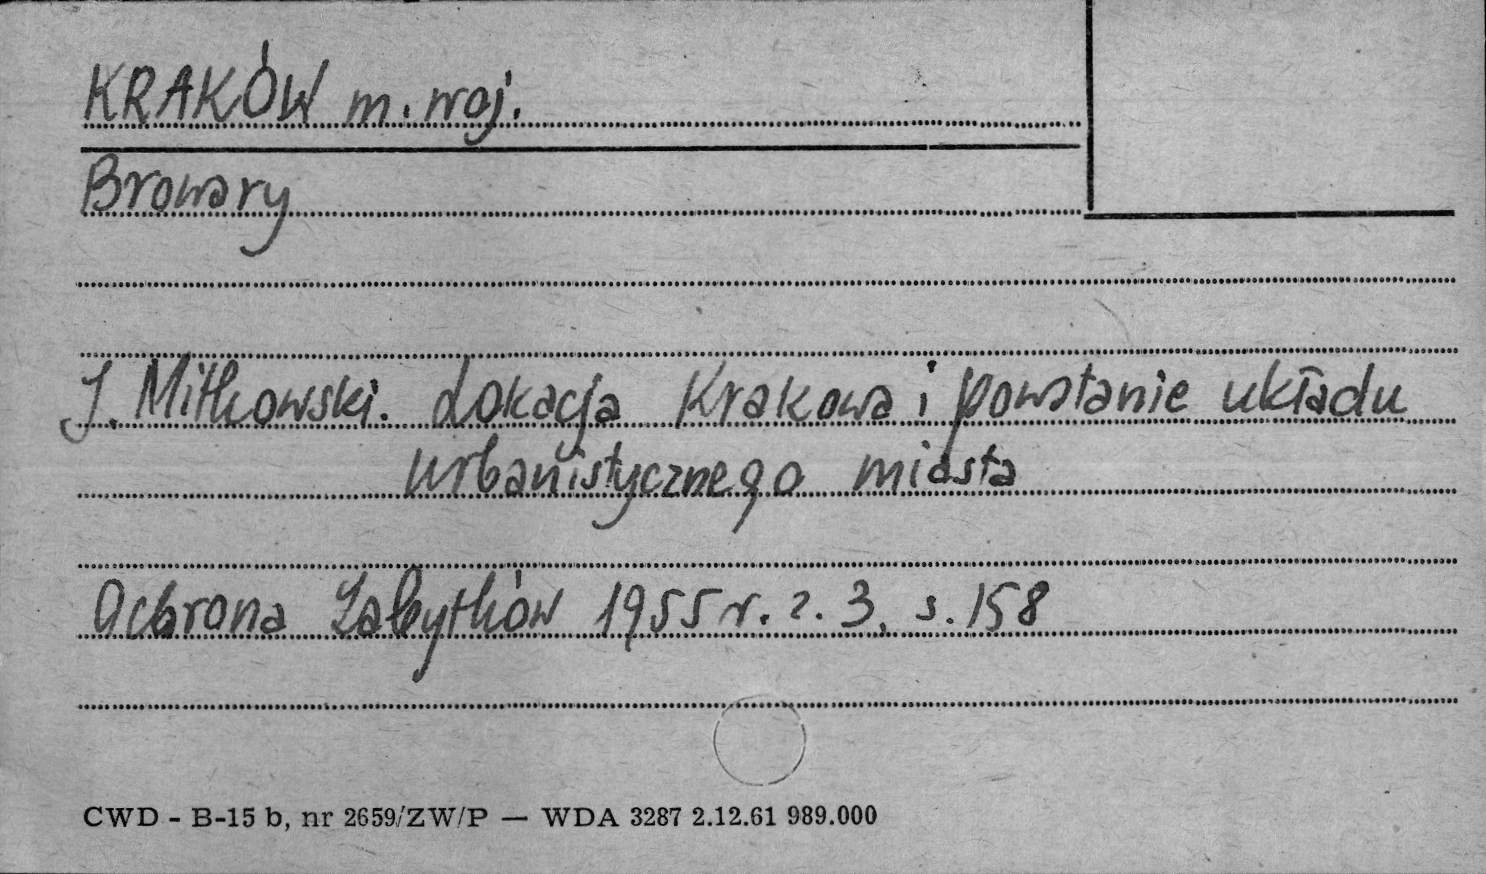 KRAKÓW m. woj.
Browary
J. Mitkowski. Lokacja Krakowa i powstanie układu
urbanistycznego miasta
Ochrona Zabytków 1955 r. z. 3. s. 158
CWD - B-15 b, nr 2659/ZW/P — WDA 3287 2.12.61 989.000